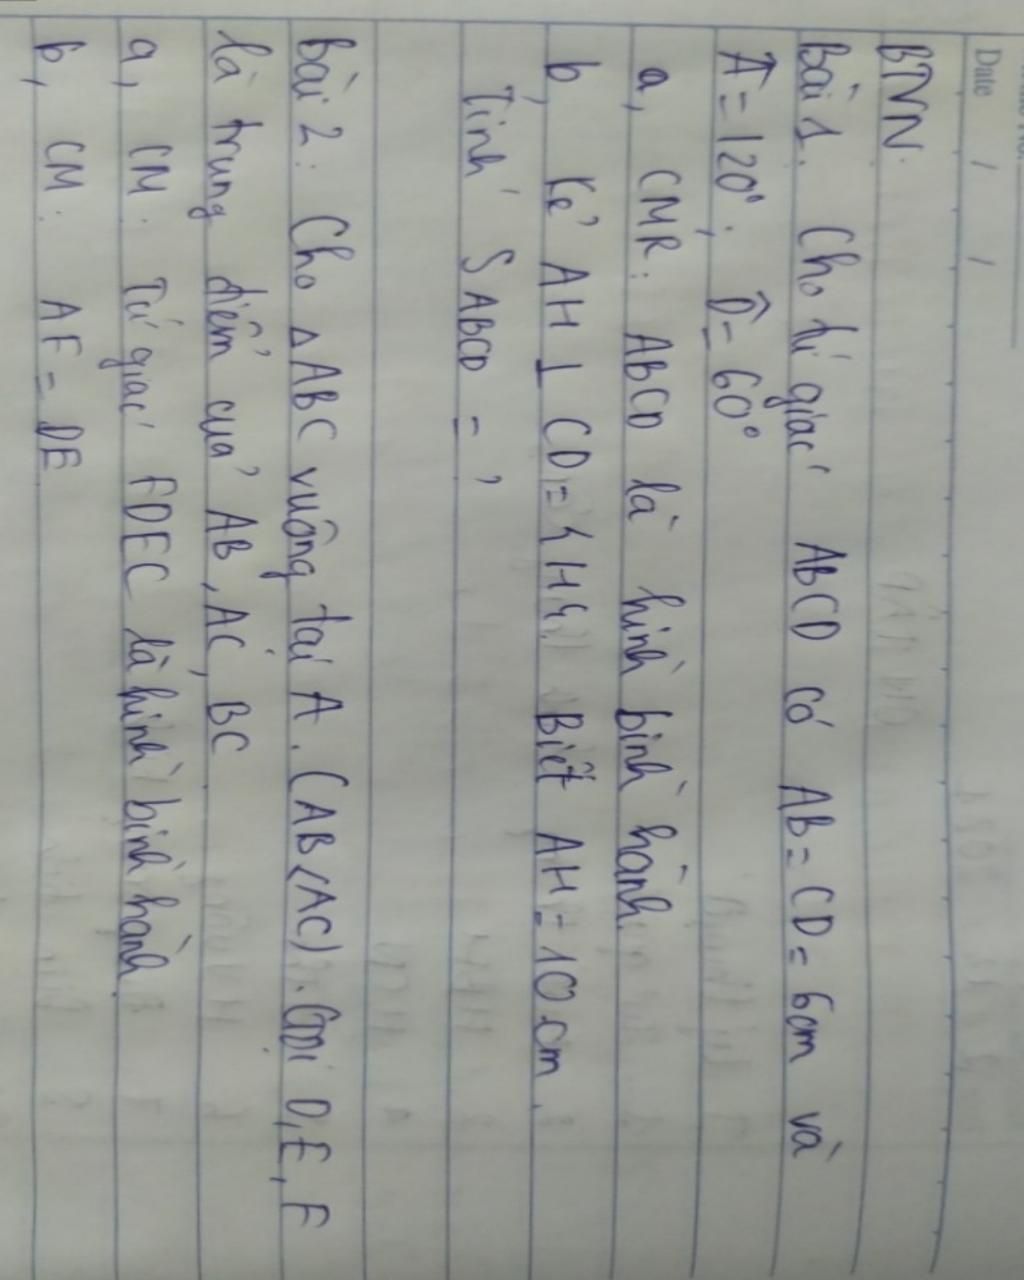 Date / /
BTVN.
Bài 1. Cho tứ giác ABCD có AB = CD = 6cm và
Â = 120°; D̂ = 60°
a, CMR: ABCD là hình bình hành.
b, Kẻ AH ⊥ CD = {H}. Biết AH = 10 cm.
Tính SABCD = ?
Bài 2: Cho △ABC vuông tại A. (AB < AC). Gọi D, E, F
là trung điểm của AB, AC, BC
a, CM: Tứ giác FDEC là hình bình hành.
b, CM: AF = DE